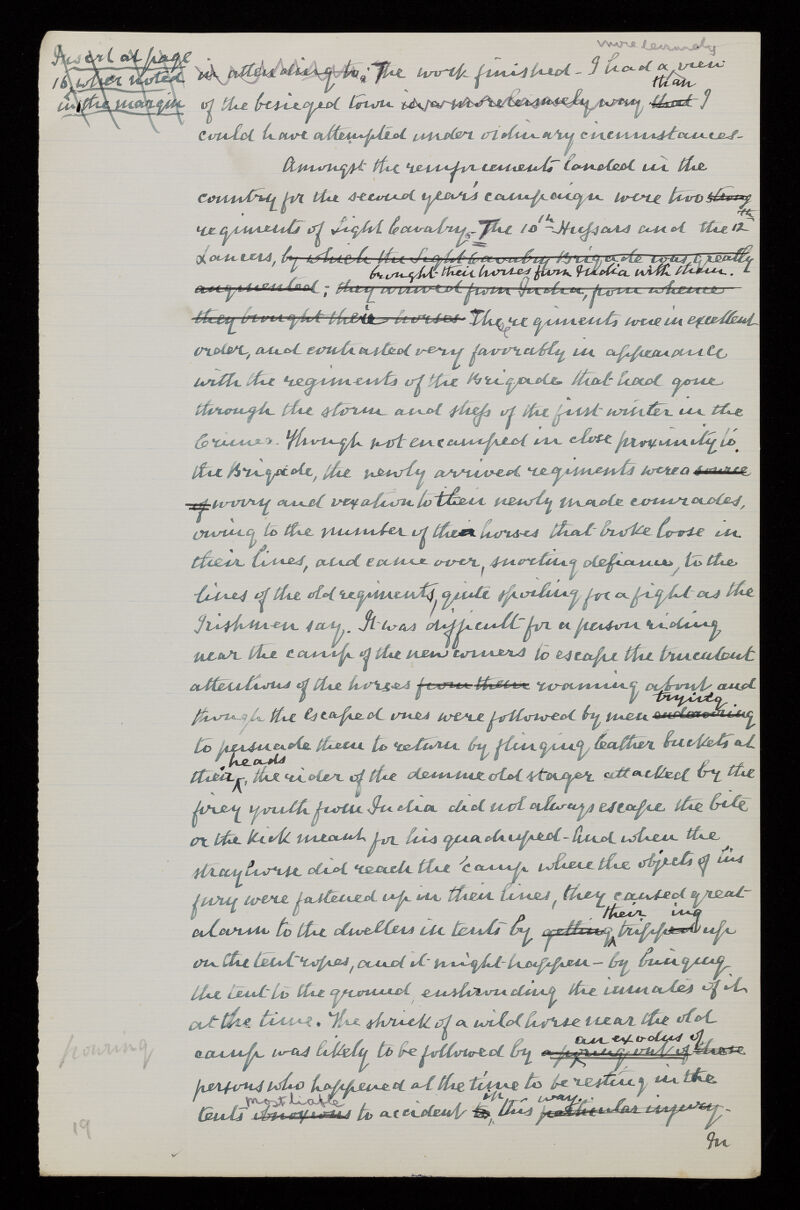 more leisurely
Insert at page
16, when noted
in the margin
in attending to: The work finished - I had a view
of the besieged town in a more leisurely way that than I
could have attempted under ordinary circumstances-
Amongst the reinforcements landed in the
country for the second year's campaign were two strong
regiments of Light Cavalry, - The 10th Hussars and the 12th
Lancers, by which the Light Cavalry Brigade was greatly
brought their horses from India with them.
augmented; they arrived from India, from whence
they brought their horses These regiments were in excellent
order, and contrasted very favorably in appearance
with the regiments of the Brigade that had gone
through the storm and stress of the first winter in the
Crimea. Though not encamped in close proximity to
the Brigade, the newly arrived regiments were a source
of worry and vexation to their newly made comrades,
owing to the number of their horses that broke loose in
their lines, and came over, snorting defiance, to the
lines of the old regiments, quite spoiling for a fight as the
Irishmen say. It was difficult for a person riding
near the camp of the new comers to escape the truculent
attentions of the horses from them roaming about and
though the escaped ones were followed by men endeavoring trying
to persuade them to return by flinging leather buckets at
their heads, the rider of the demure old stager attacked by the
firey youth from India did not always escape the bite
or the kick meant for his quadruped - And when the
stray horse did reach the camp where the objects of his
fury were fastened up in their lines, they caused great
alarm to the dwellers in tents by getting their tripped ing up
on the tent ropes, and it might happen - by bringing
the tent to the ground, enshrouding the inmates of it
at the time. The shriek of a wild horse near the old
pouring
camp was likely to be followed by a poring out of those an exodus of
persons who happened at the time to be resting in the
tents obnoxious most liable to accident to, in this way. particular injury-
19
In